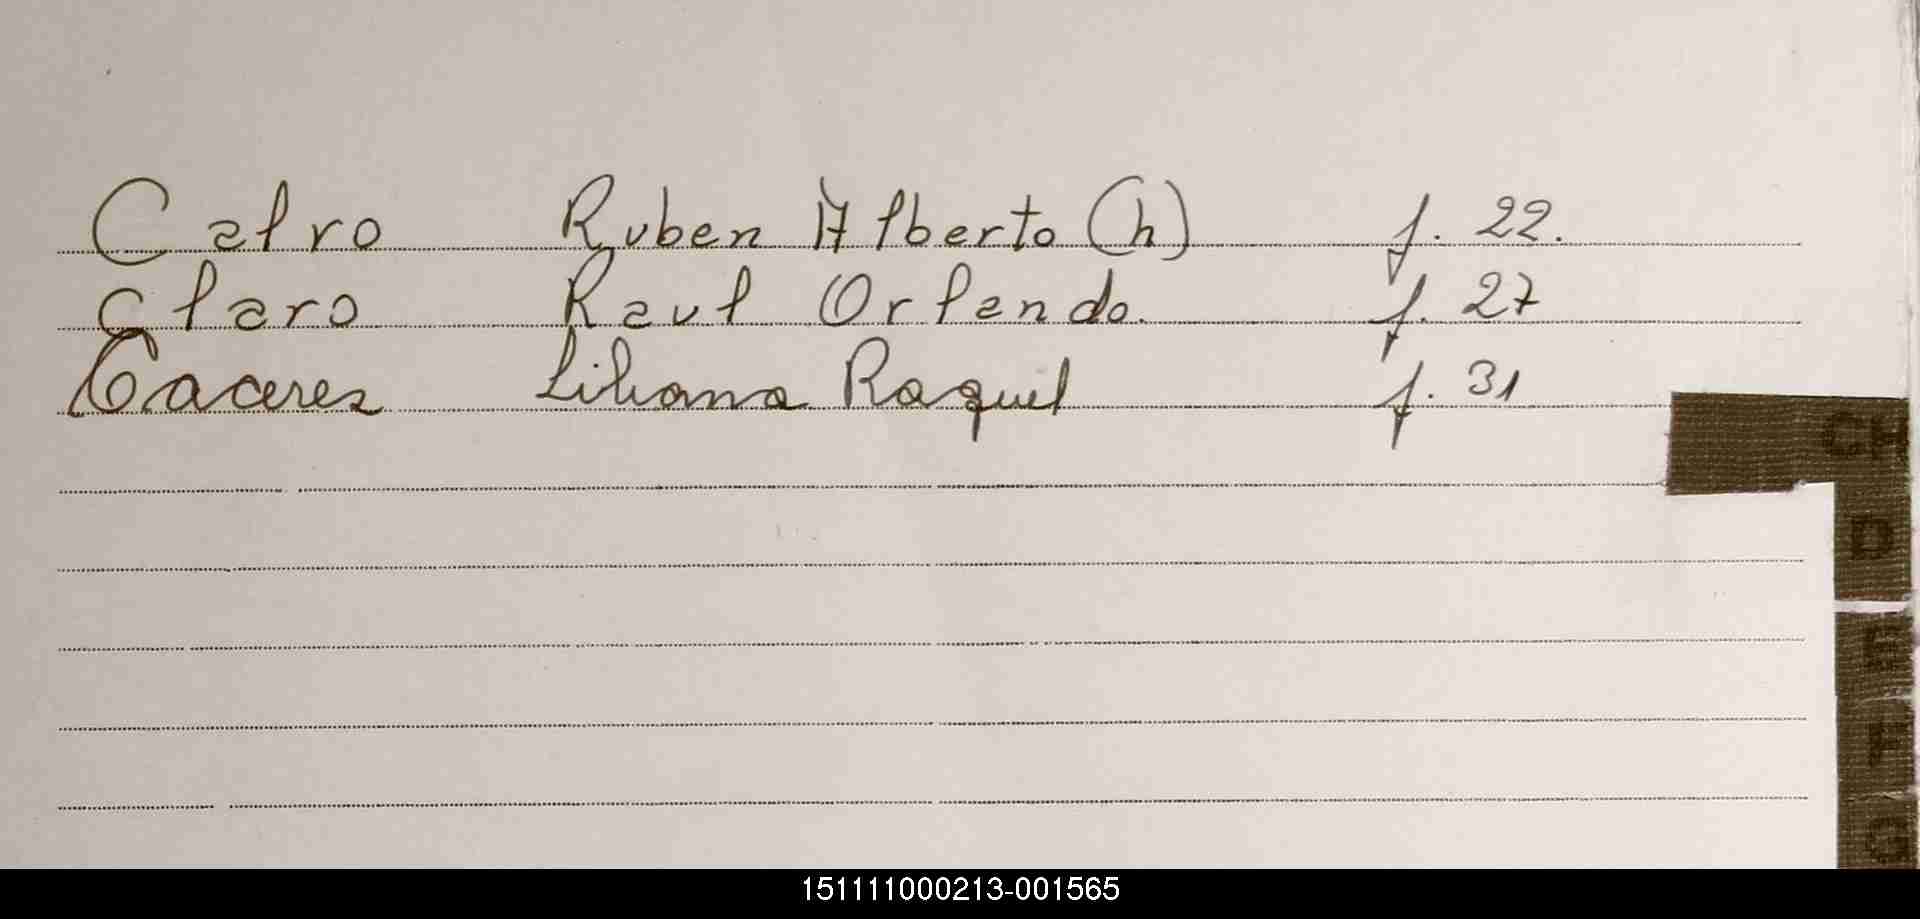 Calro Ruben Alberto (h) f. 22.
Claro Raul Orlando. f. 27
Caceres Liliana Raquel f. 31
CH
D
E
F
G
151111000213-001565